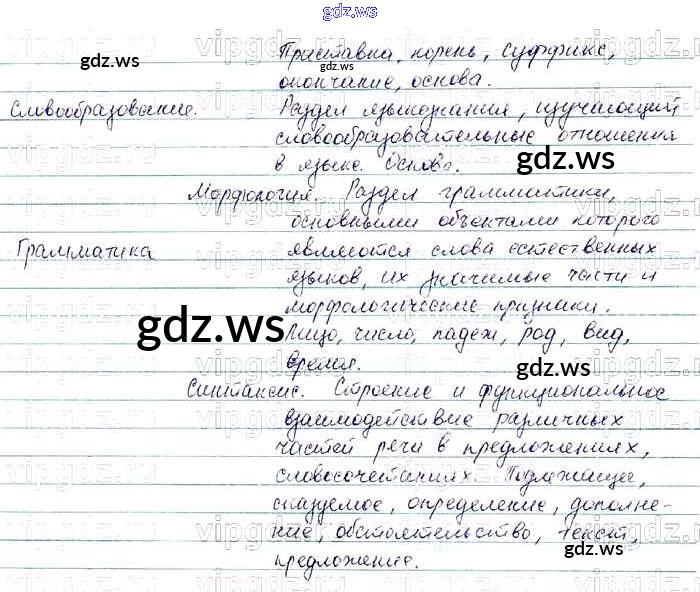 gdz.ws
Приставка, корень, суффикс,
окончание, основа.
Словообразование. Раздел языкознания, изучающий
словообразовательные отношения
в языке. Основа.
Морфология. Раздел грамматики,
основными объектами которого
Грамматика являются слова естественных
языков, их значимые части и
морфологические признаки.
Лицо, число, падеж, род, вид,
время.
Синтаксис. Строение и функциональное
взаимодействие различных
частей речи в предложениях,
словосочетаниях. Подлежащее,
сказуемое, определение, дополне-
ние, обстоятельство, текст,
предложение.
gdz.ws
gdz.ws
gdz.ws
gdz.ws
gdz.ws
gdz.ws